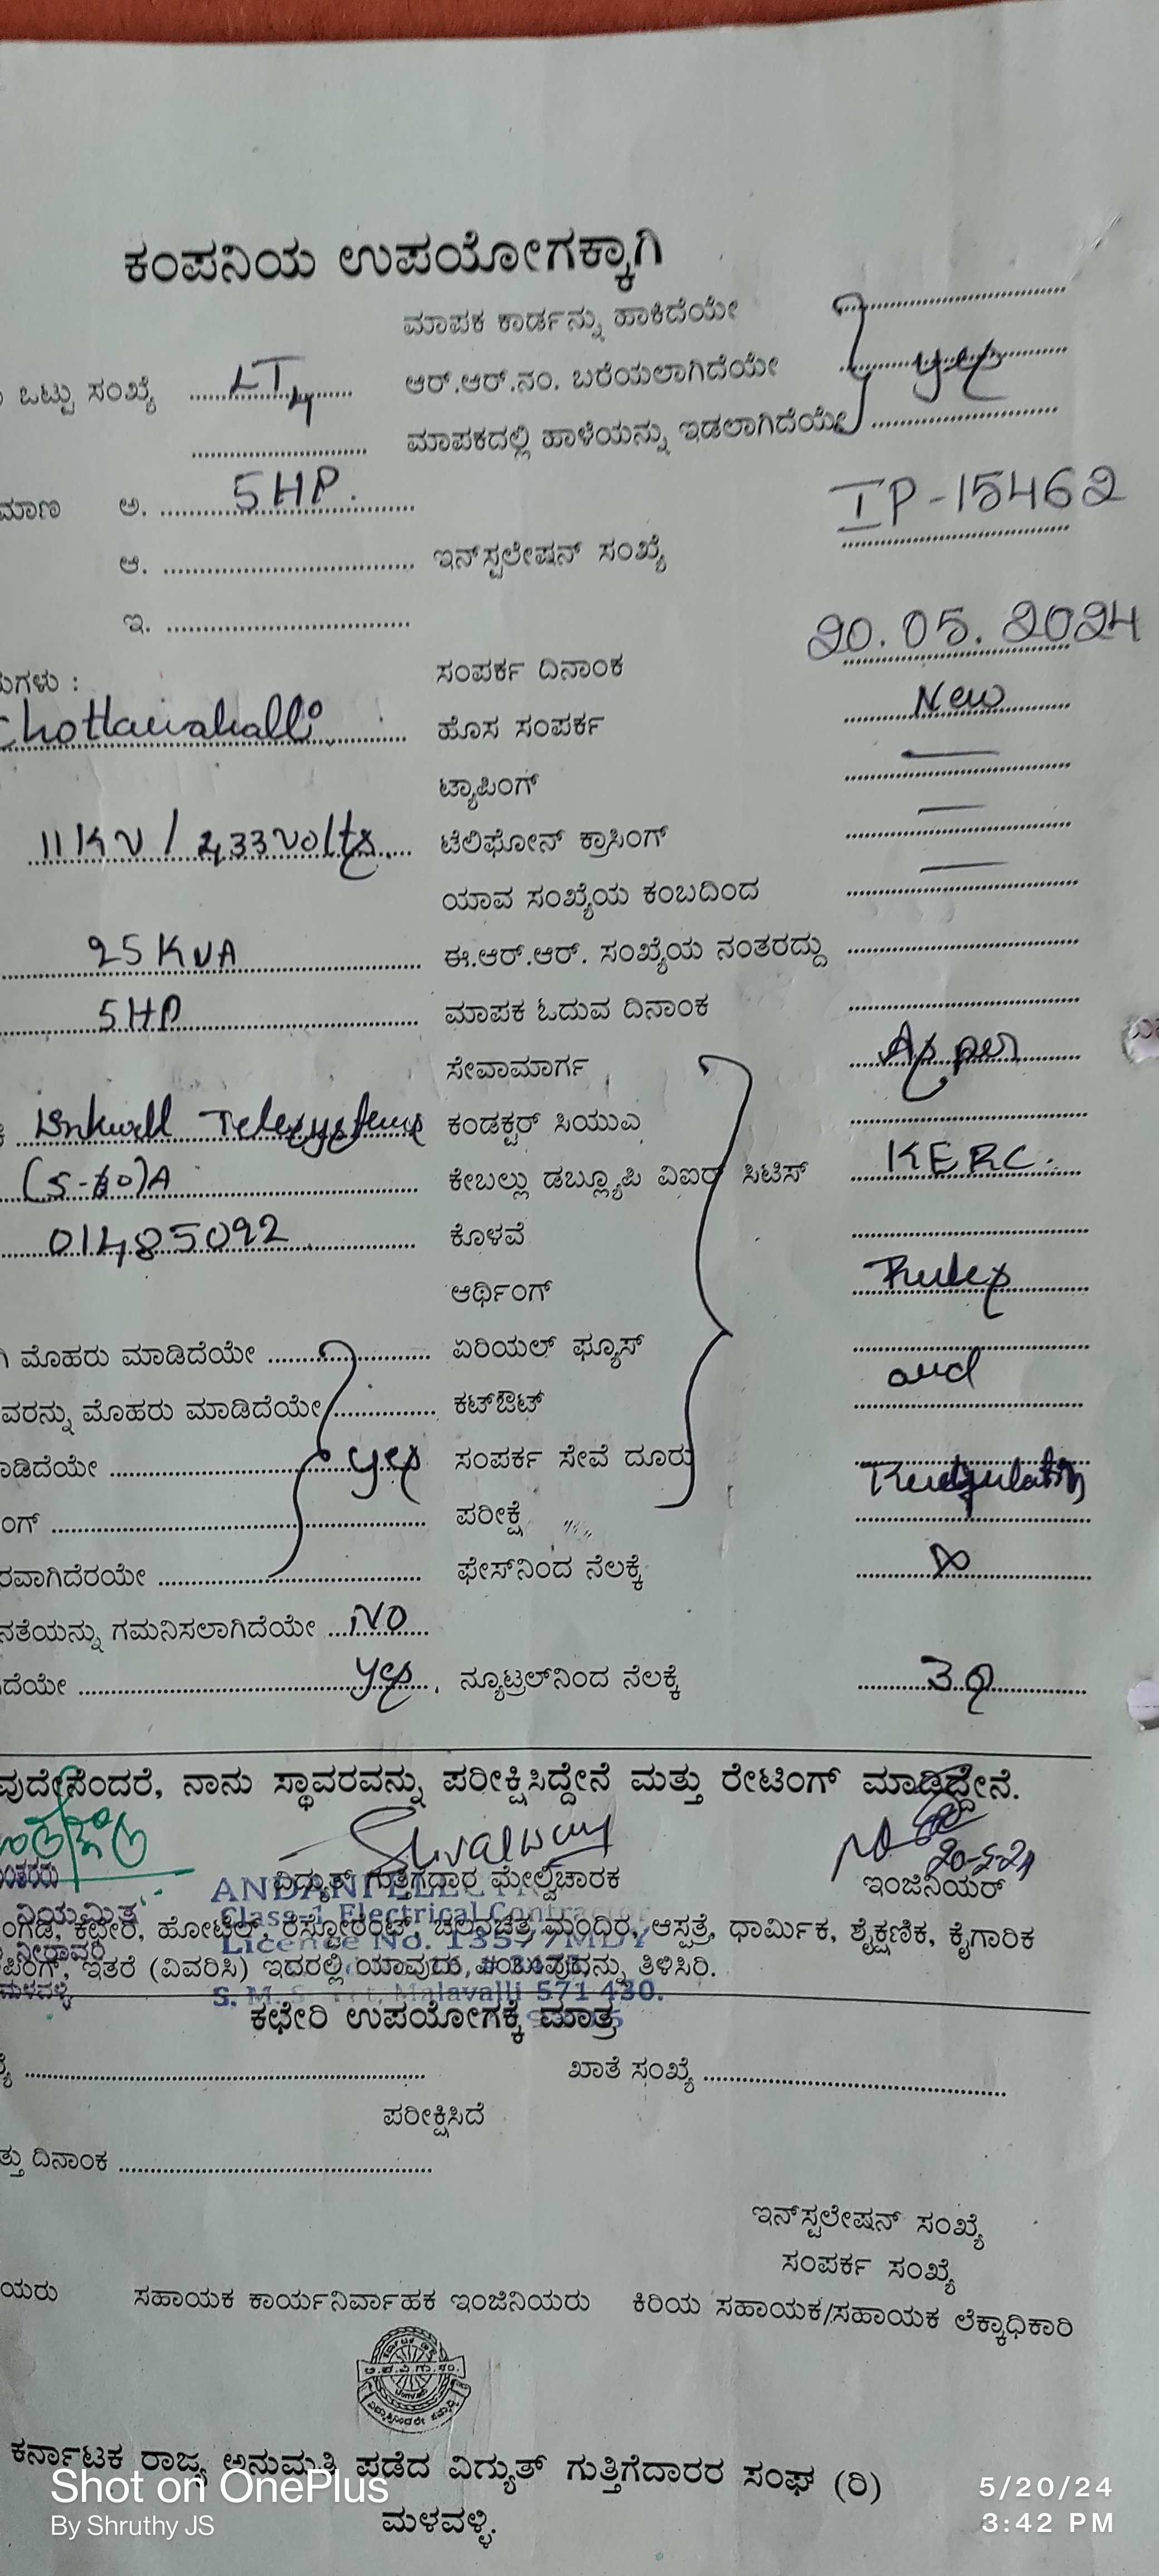 ಕಂಪನಿಯ ಉಪಯೋಗಕ್ಕಾಗಿ
ಮಾಪಕ ಕಾರ್ಡನ್ನು ಹಾಕಿದೆಯೇ
ಒಟ್ಟು ಸಂಖ್ಯೆ LT4 ಆರ್.ಆರ್.ನಂ. ಬರೆಯಲಾಗಿದೆಯೇ yes
ಮಾಪಕದಲ್ಲಿ ಹಾಳೆಯನ್ನು ಇಡಲಾಗಿದೆಯೇ
ಮಾಣ ಅ. 5HP. IP-15462
ಆ. ಇನ್‌ಸ್ಟಲೇಷನ್ ಸಂಖ್ಯೆ
ಇ.
ಸಂಪರ್ಕ ದಿನಾಂಕ 20.05.2024
ಗಳು :
ಹೊಸ ಸಂಪರ್ಕ New
ಟ್ಯಾಪಿಂಗ್
11KV / 433volts. ಟೆಲಿಫೋನ್ ಕ್ರಾಸಿಂಗ್
ಯಾವ ಸಂಖ್ಯೆಯ ಕಂಬದಿಂದ
25KVA ಈ.ಆರ್.ಆರ್. ಸಂಖ್ಯೆಯ ನಂತರದ್ದು
5HP ಮಾಪಕ ಓದುವ ದಿನಾಂಕ
ಸೇವಾಮಾರ್ಗ As per
Telesystems ಕಂಡಕ್ಟರ್ ಸಿಯುಎ
ಕೇಬಲ್ಲು ಡಬ್ಲ್ಯೂಪಿ ವಿಐರ್ ಸಿಟಿಸ್ KERC.
01485092 ಕೊಳವೆ
ಆರ್ಥಿಂಗ್ Rules
ಮೊಹರು ಮಾಡಿದೆಯೇ ಏರಿಯಲ್ ಫ್ಯೂಸ್
ವರನ್ನು ಮೊಹರು ಮಾಡಿದೆಯೇ ಕಟ್‌ಔಟ್ and
ಾಡಿದೆಯೇ yes ಸಂಪರ್ಕ ಸೇವೆ ದೂರು
ಂಗ್ ಪರೀಕ್ಷೆ
ರವಾಗಿದೆರಯೇ ಫೇಸ್‌ನಿಂದ ನೆಲಕ್ಕೆ ∞
ನತೆಯನ್ನು ಗಮನಿಸಲಾಗಿದೆಯೇ NO
ದೆಯೇ yes ನ್ಯೂಟ್ರಲ್‌ನಿಂದ ನೆಲಕ್ಕೆ
ವುದೇನೆಂದರೆ, ನಾನು ಸ್ಥಾವರವನ್ನು ಪರೀಕ್ಷಿಸಿದ್ದೇನೆ ಮತ್ತು ರೇಟಿಂಗ್ ಮಾಡಿದ್ದೇನೆ.
ವಿದ್ಯುತ್ ಗುತ್ತಿಗೆದಾರ ಮೇಲ್ವಿಚಾರಕ ಇಂಜಿನಿಯರ್
Class-1 Electrical Contractor
ಂಗಡಿ, ಕಛೇರಿ, ಹೋಟೆಲ್, ರೆಸ್ಟೋರೆಂಟ್, ಚಲನಚಿತ್ರ ಮಂದಿರ, ಆಸ್ಪತ್ರೆ, ಧಾರ್ಮಿಕ, ಶೈಕ್ಷಣಿಕ, ಕೈಗಾರಿಕ
ಪಿಂಗ್, ಇತರೆ (ವಿವರಿಸಿ) ಇದರಲ್ಲಿ ಯಾವುದು, ಎಂಬುವುದನ್ನು ತಿಳಿಸಿರಿ.
Malavalli 571 430.
ಕಛೇರಿ ಉಪಯೋಗಕ್ಕೆ ಮಾತ್ರ
ಖಾತೆ ಸಂಖ್ಯೆ
ಪರೀಕ್ಷಿಸಿದೆ
ತ್ತು ದಿನಾಂಕ
ಇನ್‌ಸ್ಟಲೇಷನ್ ಸಂಖ್ಯೆ
ಸಂಪರ್ಕ ಸಂಖ್ಯೆ
ಯರು ಸಹಾಯಕ ಕಾರ್ಯನಿರ್ವಾಹಕ ಇಂಜಿನಿಯರು ಕಿರಿಯ ಸಹಾಯಕ/ಸಹಾಯಕ ಲೆಕ್ಕಾಧಿಕಾರಿ
ಕರ್ನಾಟಕ ರಾಜ್ಯ ಅನುಮತಿ ಪಡೆದ ವಿಗ್ಯುತ್ ಗುತ್ತಿಗೆದಾರರ ಸಂಘ (ರಿ)
ಮಳವಳ್ಳಿ.
Shot on OnePlus
By Shruthy JS
5/20/24
3:42 PM